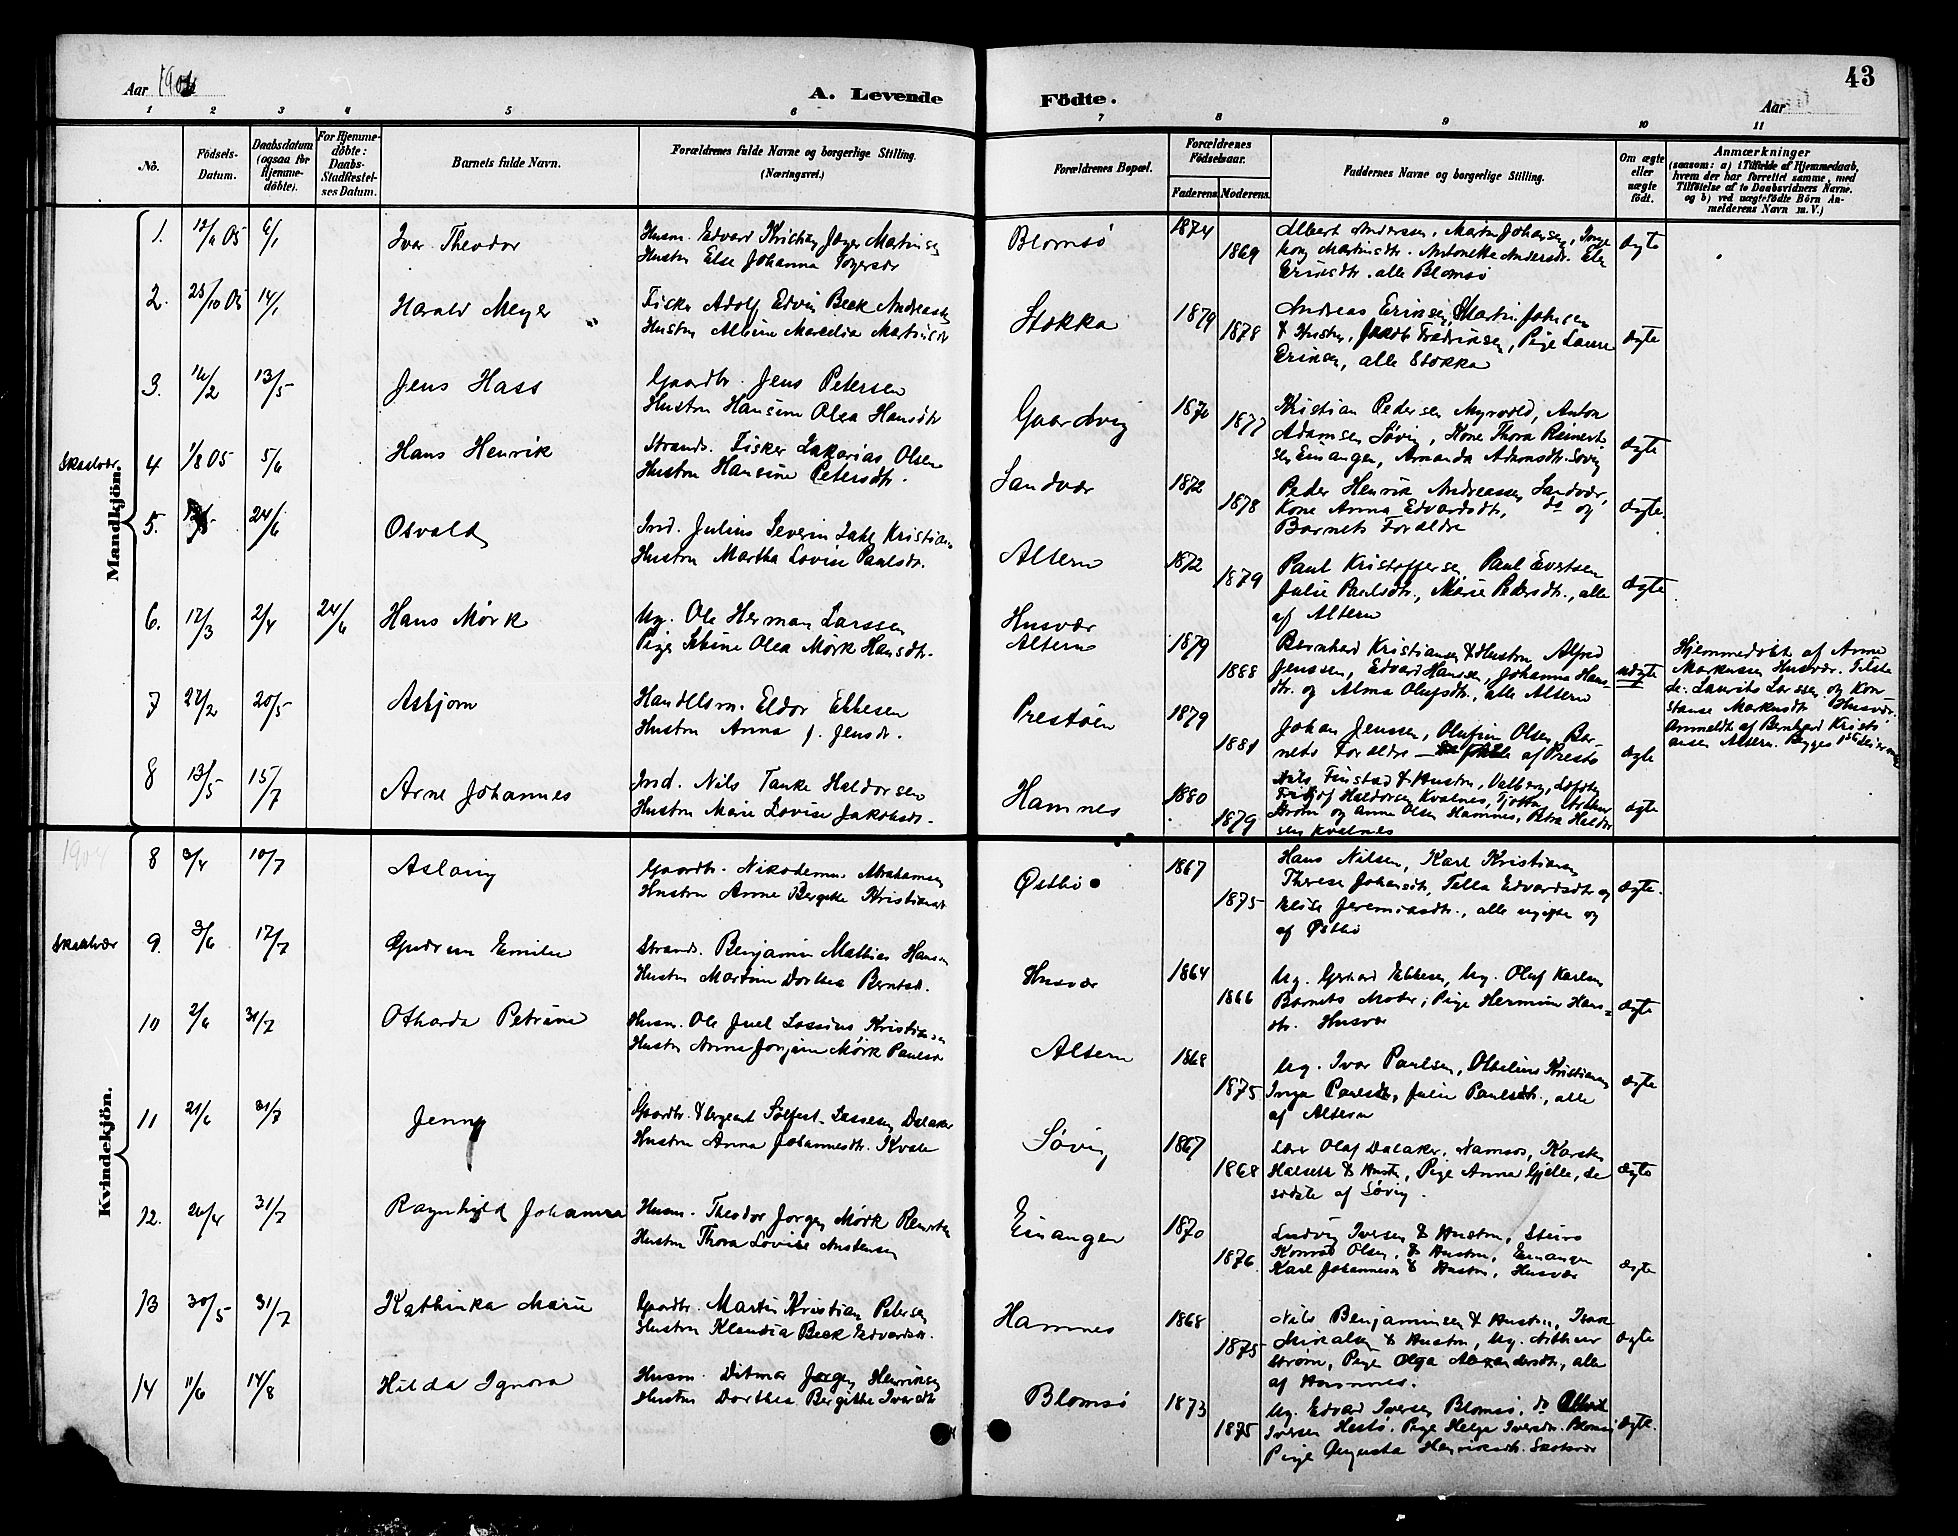 43
Aar 190
A. Levende
Födte.
Aar
1 2 3 4 5 6 7 8 9 10 11
No.
Födsels-Datum.
Daabsdatum (ogsaa for Hjemme-döbte).
For Hjemme-döbte: Daabs-Stadfæstel-ses Datum.
Barnets fulde Navn.
Forældrenes fulde Navne og borgerlige Stilling. (Næringsvei.)
Forældrenes Bopæl.
Forældrenes Födselsaar.
Faderens. Moderens.
Faddernes Navne og borgerlige Stilling.
Om ægte eller uægte födt.
Anmærkninger
(saasom: a) i Tilfælde af Hjemmedaab,
hvem der har forrettet samme, med
Tilföielse af to Daabsvidners Navne.
og b) ved uægtefödte Börn An-
melderens Navn m. V.)
Mandkjön.
1. 05 6/1 Ivar Theodor
Husm. Edvard Kristian Jørger Martinsen
Hustru Else Johanna
Blomsø 1874 1869
Albert Anderssen, Martin Johansen, Inge
borg Martinsdt. Antonette Andersdt.
alle Blomsø
ægte
2. 25/10 05 14/1 Harald Meyer
Fisker Adolf Edvin Beck Andreassen
Hustru Albine
Stokka 1879 1878
Andreas Martin Johnsen
& Hustru, Pige Laura
alle Stokka
ægte
3. 16/2 13/5 Jens Hass
Gaardbr. Jens Petersen
Hustru Hansine Olea Hansdtr
Gaardvig 1870 1877
Kristian Pedersen Myrvold, Anton
Adamsen Søvig, Kone Thora Reinert
sen Einangen, Amanda Adamsdt. Søvig
ægte
Skaalvær
4 1/8 05 5/6 Hans Henrik
Strands. Fisker Zakarias Olsen
Hustru Hansine Petersdtr.
Sandvær 1872 1878
Peder Henrik Andreassen Sandvær,
Kone Anna Edvardsdtr. do og
Barnets Forældre
ægte.
5. 24/6 Osvald
Ind. Julius Severin Kristian
Hustru Martha Lovise Paulsdtr.
Altern 1872 1879
Paul Kristoffersen, Paul Evertsen
Julie Paulsdtr., Marie Pedersdt., alle
af Altern
ægte
6. 12/3 2/4 24/6 Hans Mørk
Ug. Ole Herman Larssen
Pige Sabine Olea Mørk Hansdtr.
Husvær
Altern 1879 1888
Bernhard Kristiansen & Hustru, Alfred
Jenssen, Edvard Hansen, Johanna Hans-
dtr. og Alma Olufsdtr., alle Altern
uægte
Hjemmedøbt af Anne
Markussen Husvær. Tilste
de: Laurits Larssen og Kon-
stanse Markusdt Husvær.
Anmeldt af Bernhard Kristi
ansen Altern.
7 22/2 20/5 Asbjørn
Handelsm. Eldor Ebbesen
Hustru Anna J. Jensdtr.
Prestøen 1879 1881
Johan Jenssen, Olufine Olsen, Bar-
nets Forældre af Prestø
ægte
8 13/5 15/7 Arne Johannes
Ind. Nils Tanke Haldorsen
Hustru Marie Lovise Jakobsdt.
Hamnes 1880 1879
Nils Finstad & Hustru, Valborg,
Fridtjof Haldorsen Kvalnes, Tjøtta, Arthur
Strøm og Anne Olsen Hamnes, Petra Haldor
sen Kvalnes
ægte
Kvindekjön.
8 3/4 10/7 Aslaug
Gaardbr. Nikodemus Abrahamsen
Hustru Anne Bergitte
Østbø 1867 1875
Hans Nilsen, Karl Kristiansen
Therese Johansdt, Tella Edvardsdt og
Elise Jeremiasdt., alle ugifte og
af Østbø
ægte.
Skaalvær
9. 3/6 17/7 Gudrun Emilie
Strands. Benjamin Mathias Hansen
Hustru Martine Dorthea Berntsd.
Husvær 1864 1866
Ug. Gerhard Ebbesen, Ug. Oluf Karlsen
Barnets Moder, Pige Hermine Hans=
dtr. Husvær
ægte
10 2/6 31/7 Otharda Petrine
Husm. Ole Juel Lossius Kristiansen
Hustru Anna Jørgine Mørk Paulsdt
Altern 1868 1875
Ug. Ivar Paulsen, Othelius Kristiansen
Inga Paulsdtr, Julie Paulsdt., alle
af Altern
ægte
11 21/6 31/7 Jenny
Gaardbr. & Sergeant Sølfest Lassesen Dalaker
Hustru Anna Johannesdt. Kvale
Søvig 1867 1868
Lærer Olaf Dalaker, Namsos, Karsten
& Hustr, Pige Anna Gjelle, de
sidste af Søvig.
ægte
12. 26/4 31/7 Ragnhild Johanna
Husm. Theodor Jørgen Mørk Reinertsen
Hustru Thora Lovise Anstensen
Einangen 1870 1876
Ludvig Iversen & Hustru,
Konrad Olsen, & Hustru, Einangen
Karl Johannesen & Hustru, Husvær
ægte
13 30/5 31/7 Kathinka Marie
Gaardbr. Martin Kristian Petersen
Hustru Klaudia Beck Edvardsdt.
Hamnes 1868 1875
Nils Benjaminsen & Hustru, Isak
Mikalsen & Hustru, Ug. Arthur
Strøm, Pige Olga Alexandersdt, alle
af Hamnes.
ægte
14 11/6 14/8 Hilda Ignora
Husm. Ditmar Jørgen Henriksen
Hustru Dorthea Bergitte Iversdtr
Blomsø 1873 1875
Ug. Edvard Iversen Blomsø, do
Iversen Hestø, Pige Helga Iversdtr. Blomsø
Pige Augusta Henriksdt.
ægte.